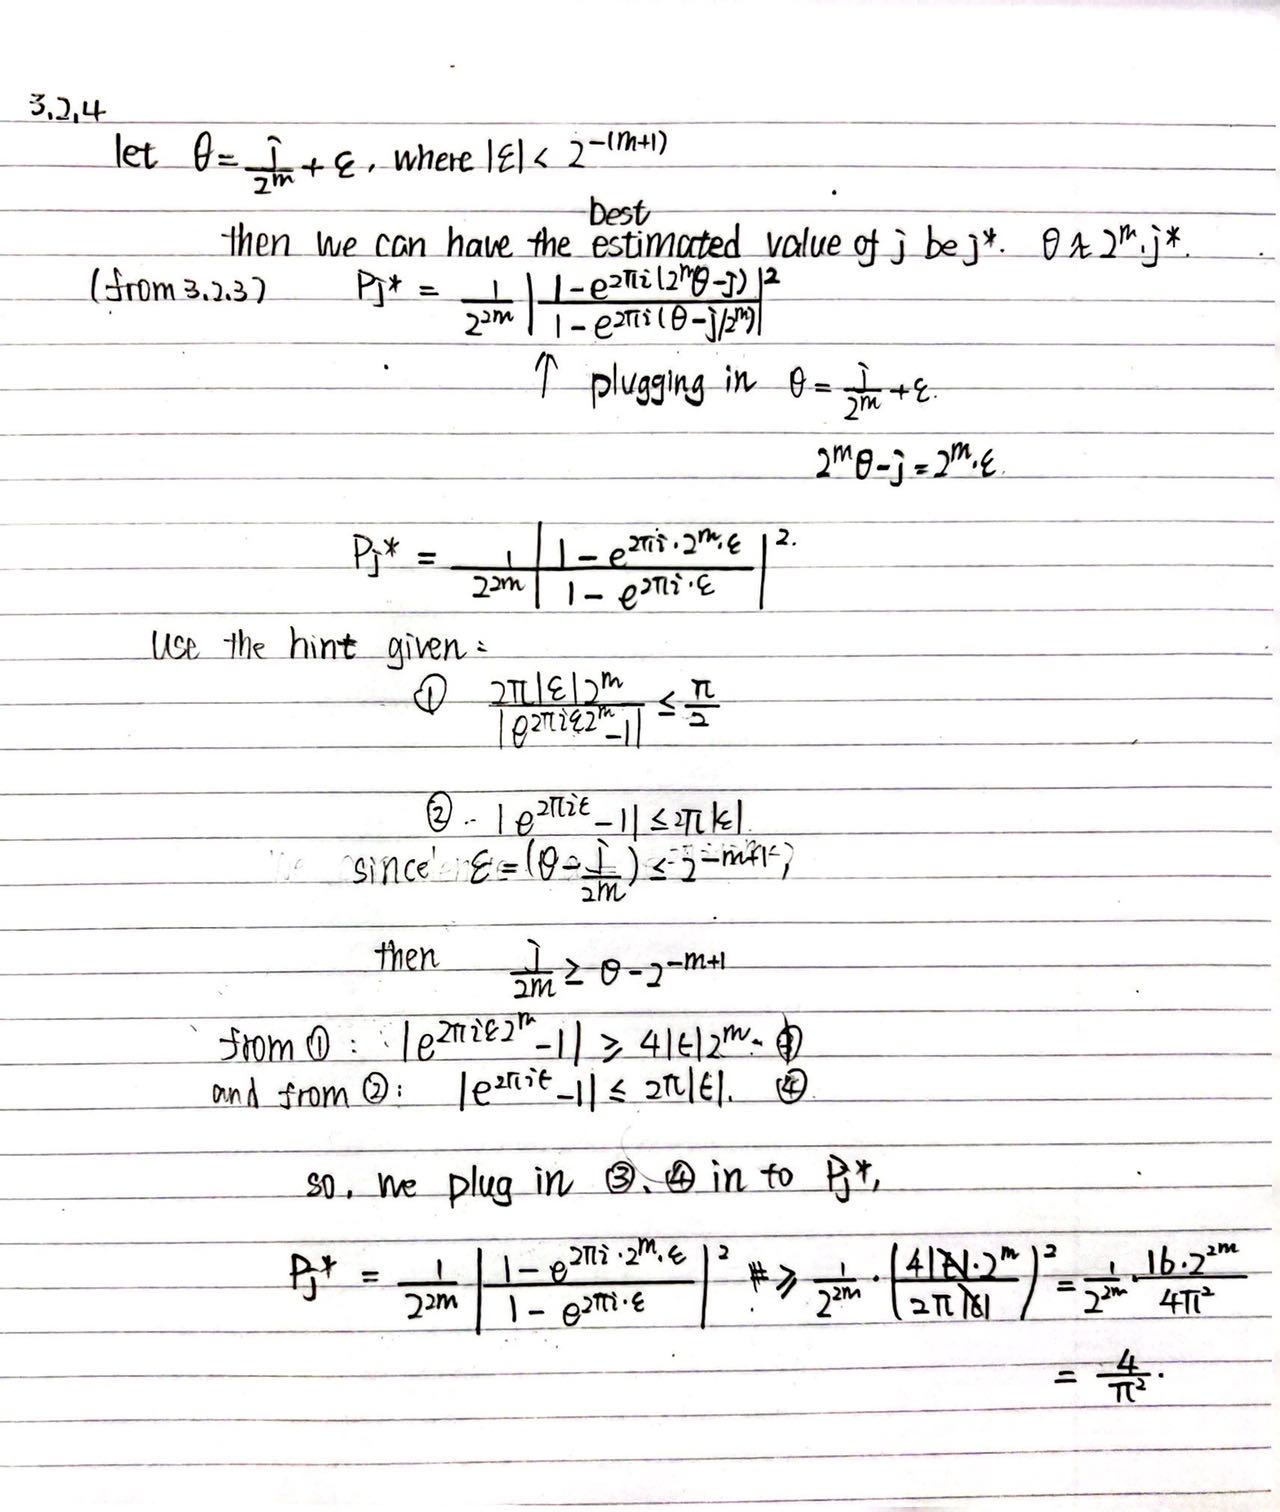 3.2.4
let θ = j/2^m + ε, where |ε| < 2^-(m+1)
best
then we can have the estimated value of j be j*. θ ≈ 2^m·j*.
(from 3.2.3) Pj* = 1/2^2m |(1-e^2πi(2^mθ-j))/(1-e^2πi(θ-j/2^m))|^2
↑ plugging in θ = j/2^m + ε.
2^mθ-j = 2^m·ε.
Pj* = 1/2^2m |(1-e^2πi·2^m·ε)/(1-e^2πi·ε)|^2.
Use the hint given:
① 2π|ε|2^m/|e^2πiε2^m-1| ≤ π/2
② |e^2πiε-1| ≤ 2π|ε|.
since ε = (θ - j/2^m) ≤ 2^-m+1,
then j/2^m ≥ θ - 2^-m+1
from ①: |e^2πiε2^m-1| ≥ 4|ε|2^m. ③
and from ②: |e^2πiε-1| ≤ 2π|ε|. ④
so, we plug in ③、④ in to Pj*,
Pj* = 1/2^2m |(1-e^2πi·2^m·ε)/(1-e^2πi·ε)|^2 ≥ 1/2^2m · (4|ε|·2^m/2π|ε|)^2 = 1/2^2m · 16·2^2m/4π^2
= 4/π^2.